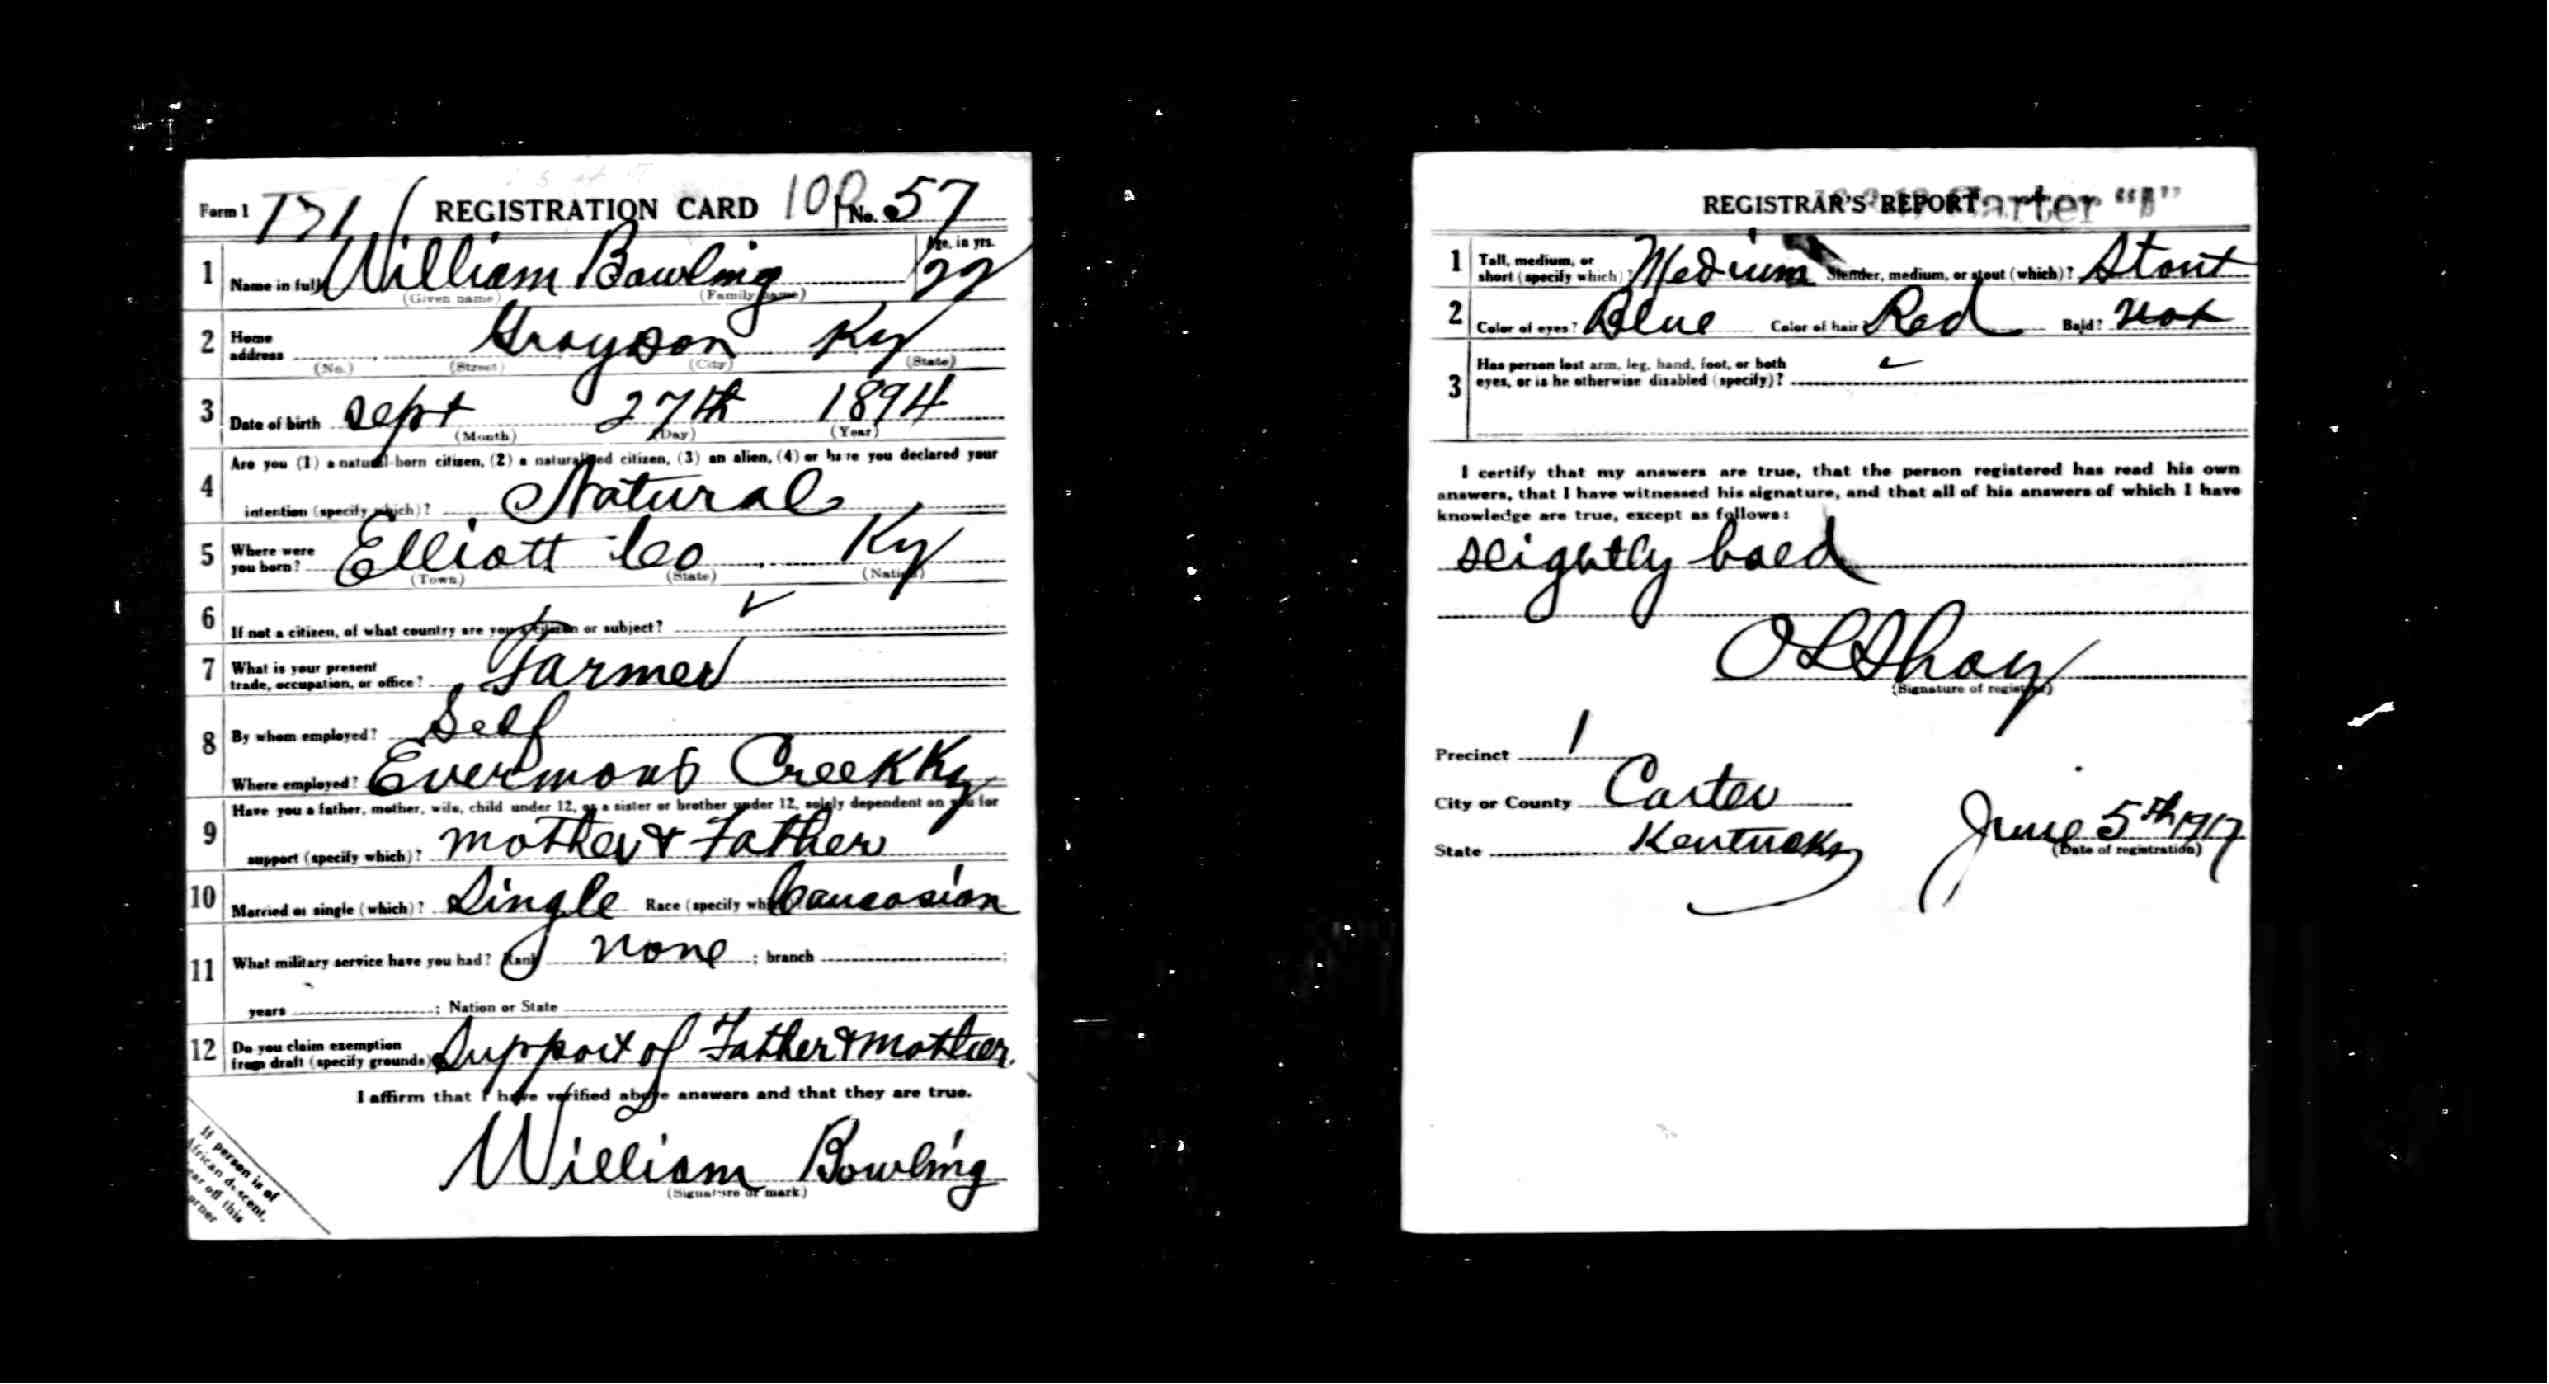 Form 1 171 REGISTRATION CARD No. 57
1 Name in full William Bowling Age, in yrs. 22
(Given name) (Family name)
2 Home address Grayson Ky
(No.) (Street) (City) (State)
3 Date of birth Sept 27th 1894
(Month) (Day) (Year)
4 Are you (1) a natural-born citizen, (2) a naturalized citizen, (3) an alien, (4) or have you declared your
intention (specify which)? Natural
5 Where were you born? Elliott Co Ky
(Town) (State) (Nation)
6 If not a citizen, of what country are you a citizen or subject?
7 What is your present trade, occupation, or office? Farmer
8 By whom employed? Self
Where employed? Evermons Creek Ky
9 Have you a father, mother, wife, child under 12, or a sister or brother under 12, solely dependent on you for
support (specify which)? mother & Father
10 Married or single (which)? Single Race (specify which)? Caucasian
11 What military service have you had? Rank none ; branch ;
years ; Nation or State
12 Do you claim exemption from draft (specify grounds)? Support of Father & mother.
I affirm that I have verified above answers and that they are true.
William Bowling
(Signature or mark)
If person is of
African descent,
tear off this
corner
REGISTRAR'S REPORT
1 Tall, medium, or short (specify which)? Medium Slender, medium, or stout (which)? Stout
2 Color of eyes? Blue Color of hair Red Bald? not
3 Has person lost arm, leg, hand, foot, or both
eyes, or is he otherwise disabled (specify)?
I certify that my answers are true, that the person registered has read his own
answers, that I have witnessed his signature, and that all of his answers of which I have
knowledge are true, except as follows:
slightly bald
(Signature of registrar)
Precinct 1
City or County Carter
State Kentucky June 5th 1917
(Date of registration)